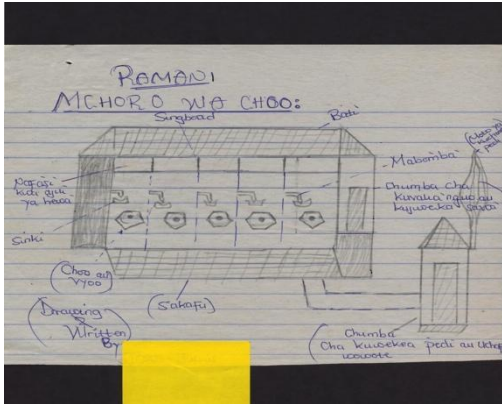 RAMANI
MCHORO WA CHOO:
Singboad
Bati
Nafasi
kidogo
ya hewa
Mabomba
Chumba cha
kuvalia nguo au
kujiweka
Sinki
(Choo au
vyoo
(Sakafu)
(Drawing
&
Written
By
Chumba
Cha kuwekea pedi au
wowote